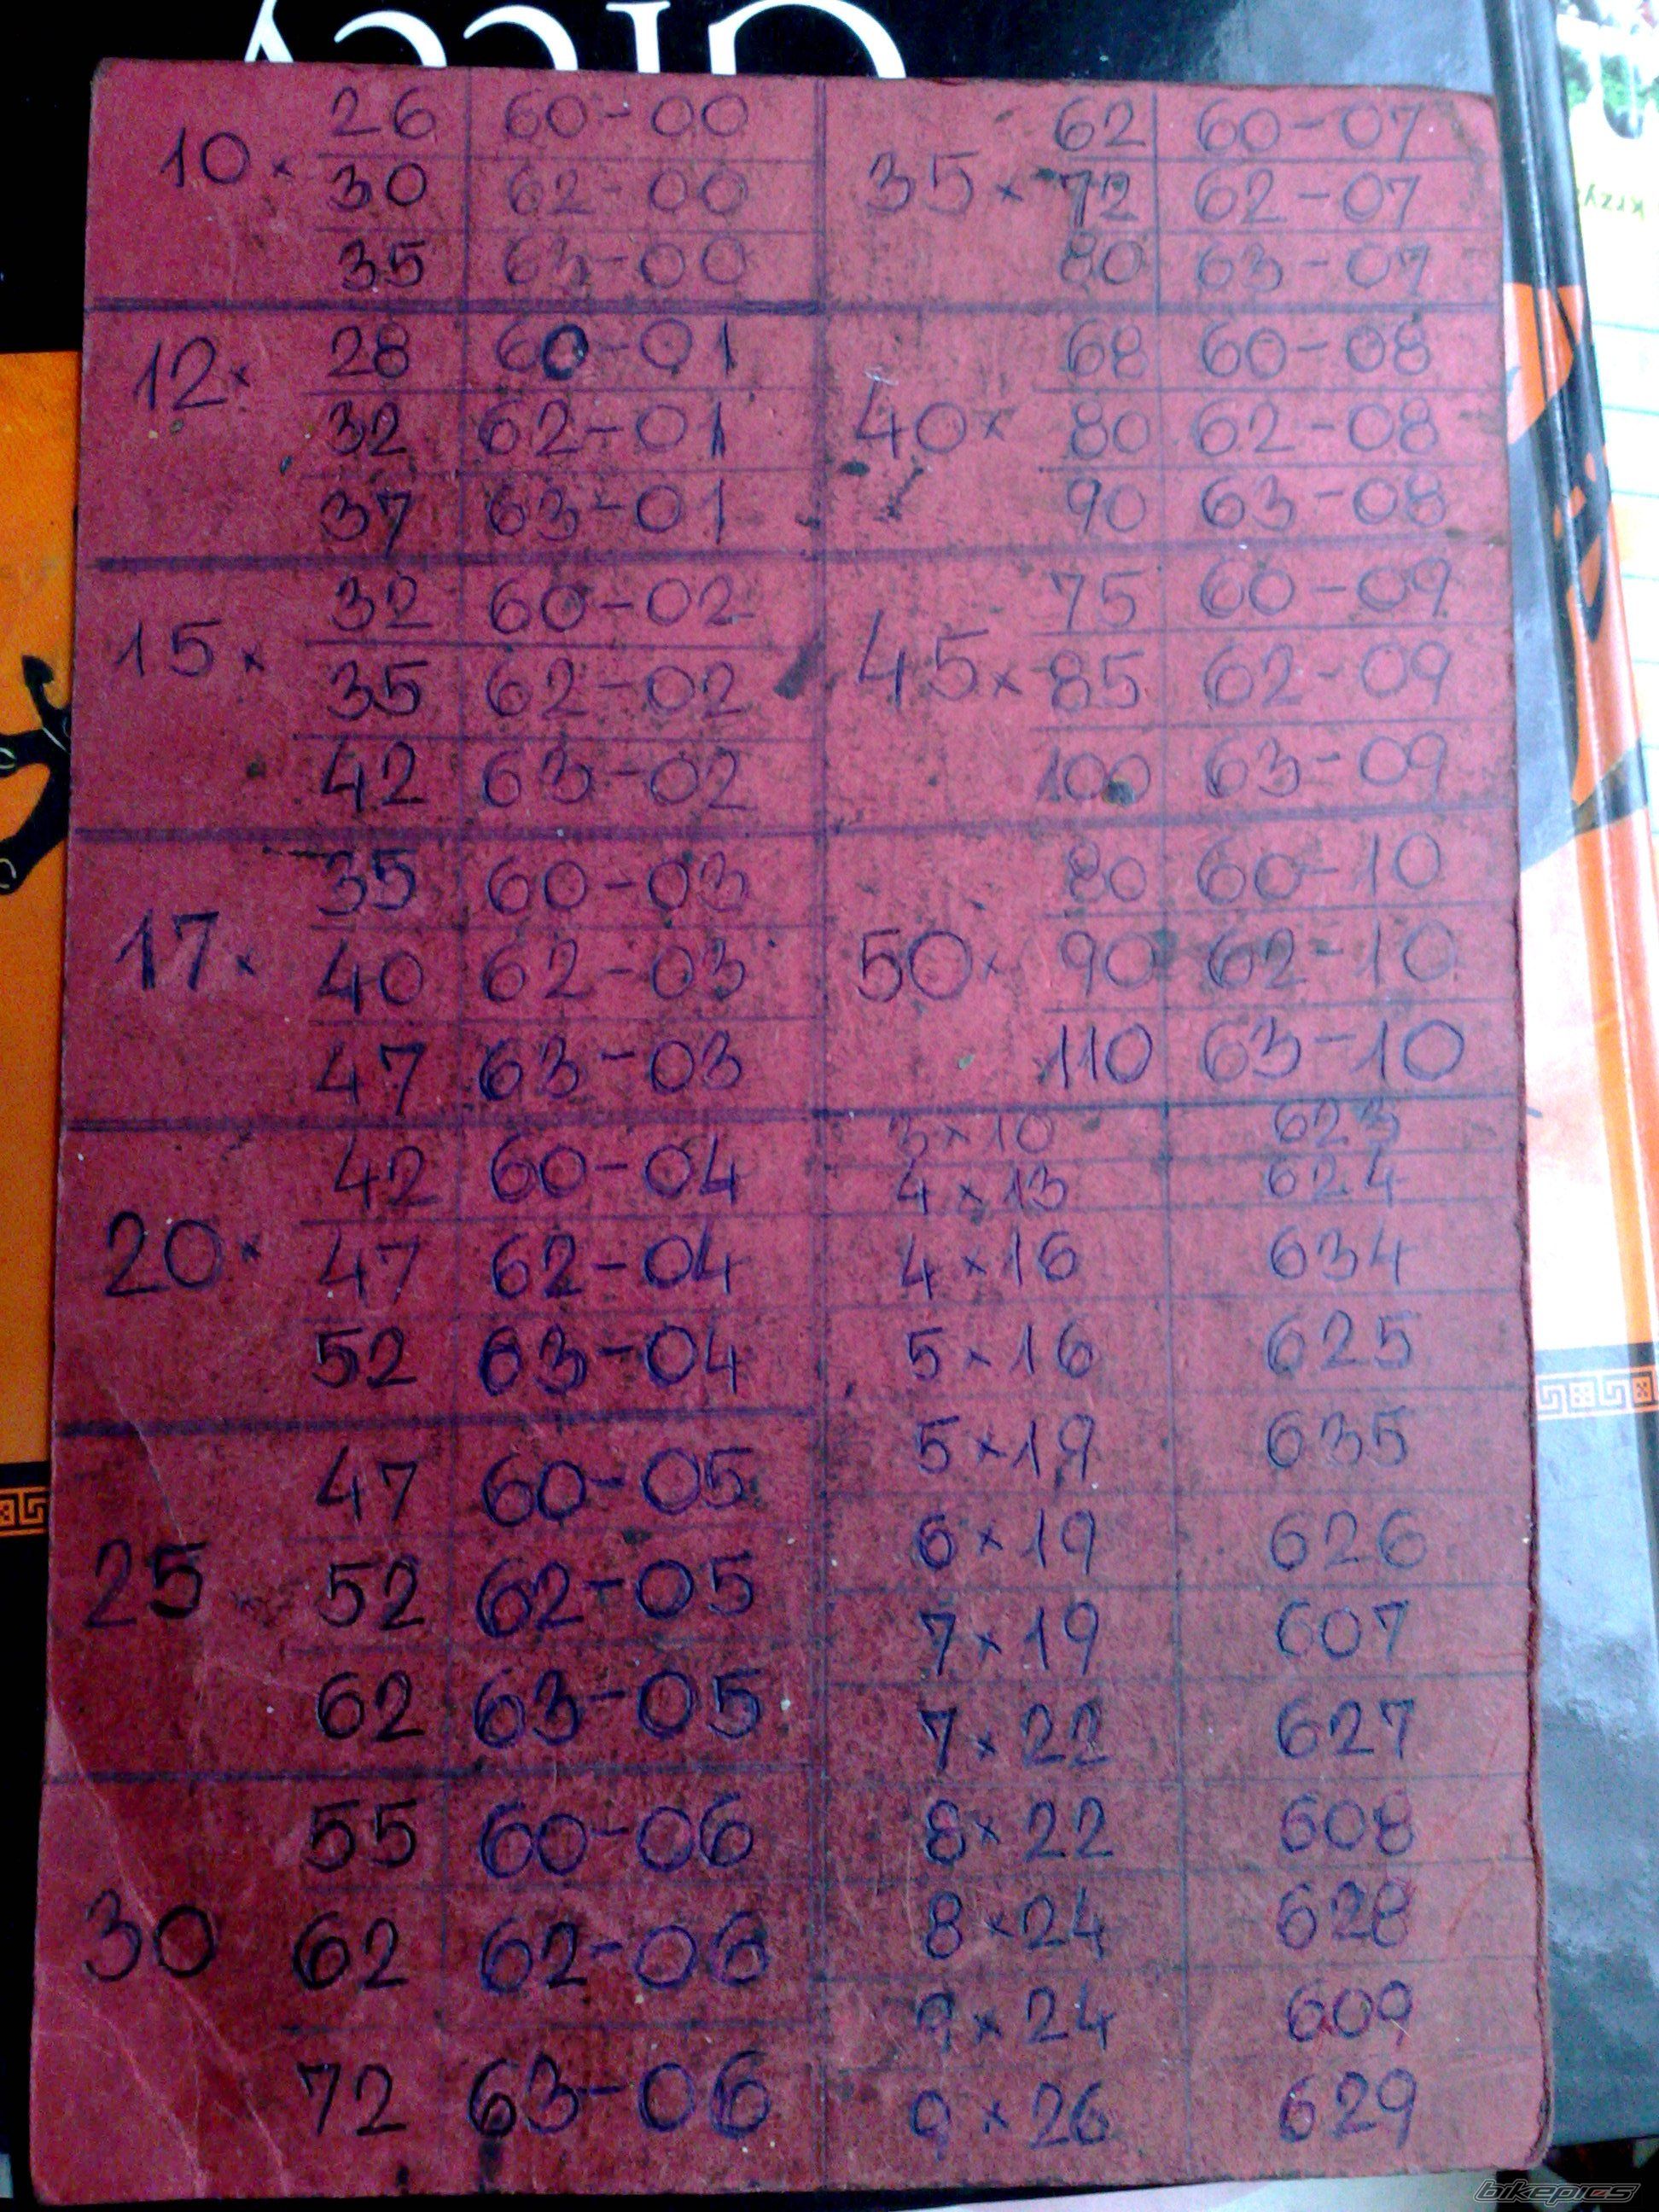 10 x 26 60-00
30 62-00
35 63-00
12 x 28 60-01
32 62-01
37 63-01
15 x 32 60-02
35 62-02
42 63-02
17 x 35 60-03
40 62-03
47 63-03
20 x 42 60-04
47 62-04
52 63-04
25 x 47 60-05
52 62-05
62 63-05
30 55 60-06
62 62-06
72 63-06
35 x 62 60-07
72 62-07
80 63-07
40 x 68 60-08
80 62-08
90 63-08
45 x 75 60-09
85 62-09
100 63-09
50 x 80 60-10
90 62-10
110 63-10
3 x 10 623
4 x 13 624
4 x 16 634
5 x 16 625
5 x 19 635
6 x 19 626
7 x 19 607
7 x 22 627
8 x 22 608
8 x 24 628
9 x 24 609
9 x 26 629
bikepics